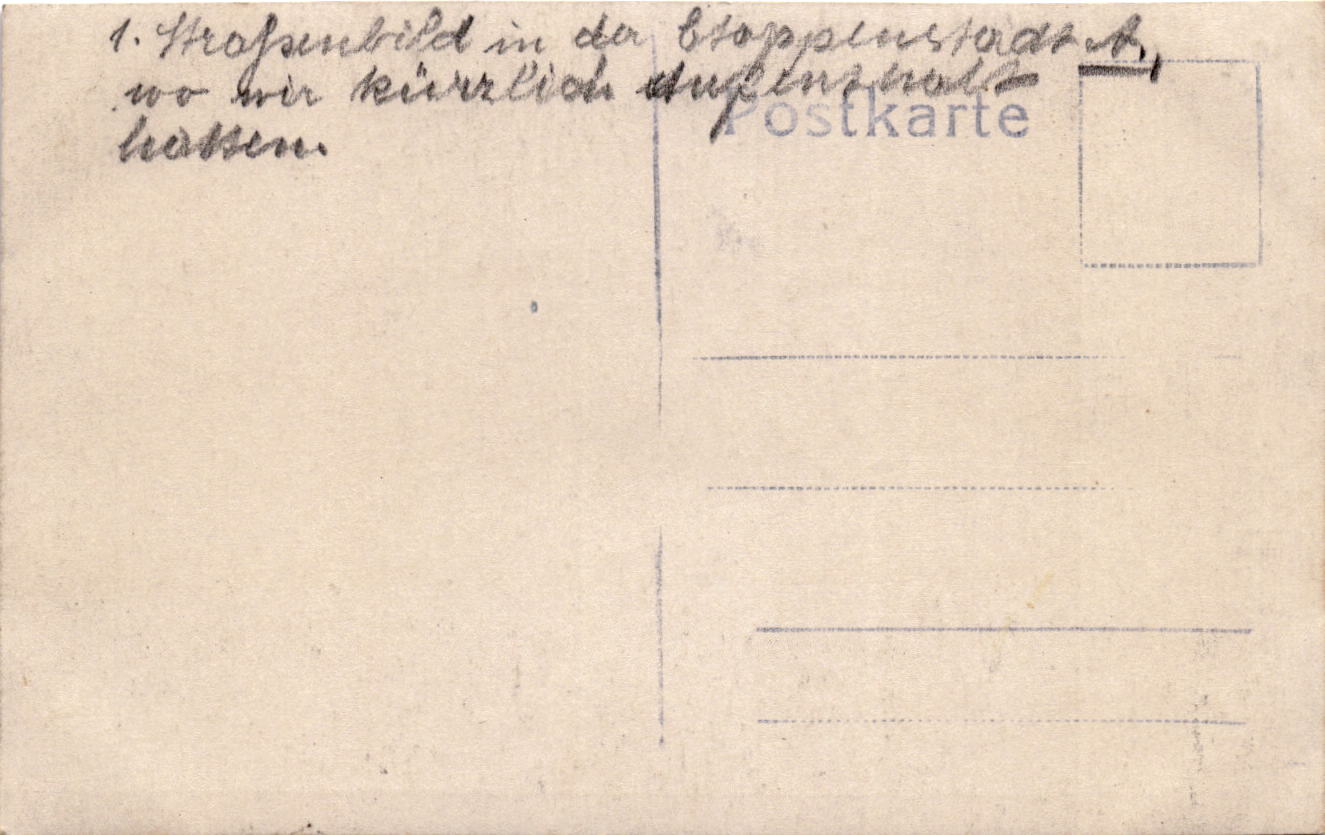 1. Straßenbild in der Etappenstadt A.,
wo wir kürzlich Aufenthalt
hatten.
Postkarte